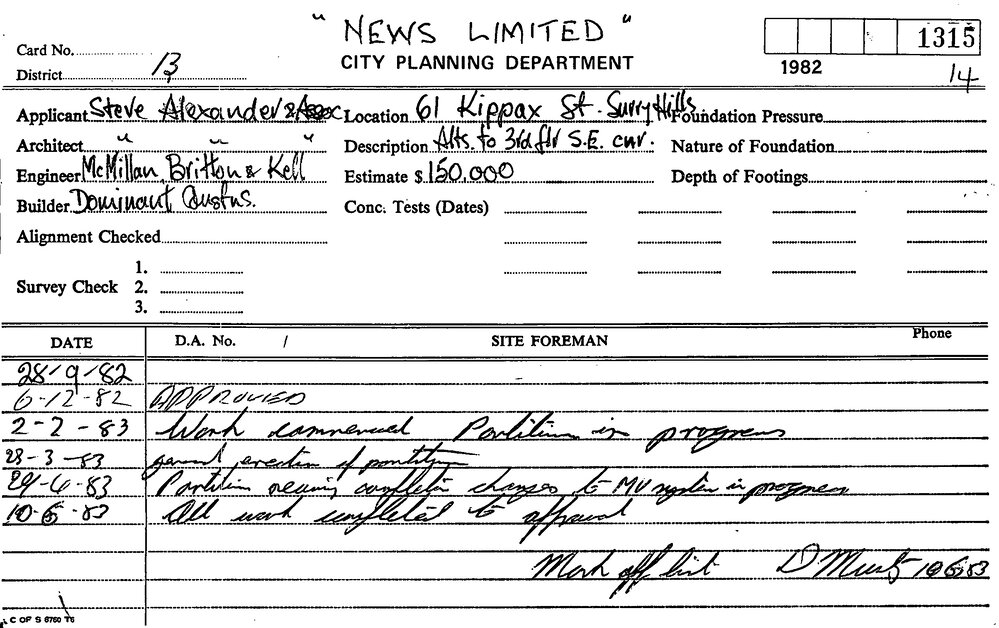 " NEWS LIMITED "
CITY PLANNING DEPARTMENT
1315
1982
14
Card No.
District 13
Applicant Steve Alexander & Assoc Location 61 Kippax St. Surry Hills Foundation Pressure
Architect " " " Description Alts. to 3rd flr S.E. cnr. Nature of Foundation
Engineer McMillan, Britton & Kell Estimate $ 150,000 Depth of Footings
Builder Dominant Conc. Tests (Dates)
Alignment Checked
1.
Survey Check 2.
3.
DATE D.A. No. / SITE FOREMAN Phone
28-9-82
6-12-82 APPROVED
2-2-83 Work commenced Partition in progress
28-3-83 general erection of partition
29-4-83 Partition nearing completion changes to MV system in progress
10-6-83 All work completed to approval
Mark off list D 10 6 83
C OF S 6760 T6